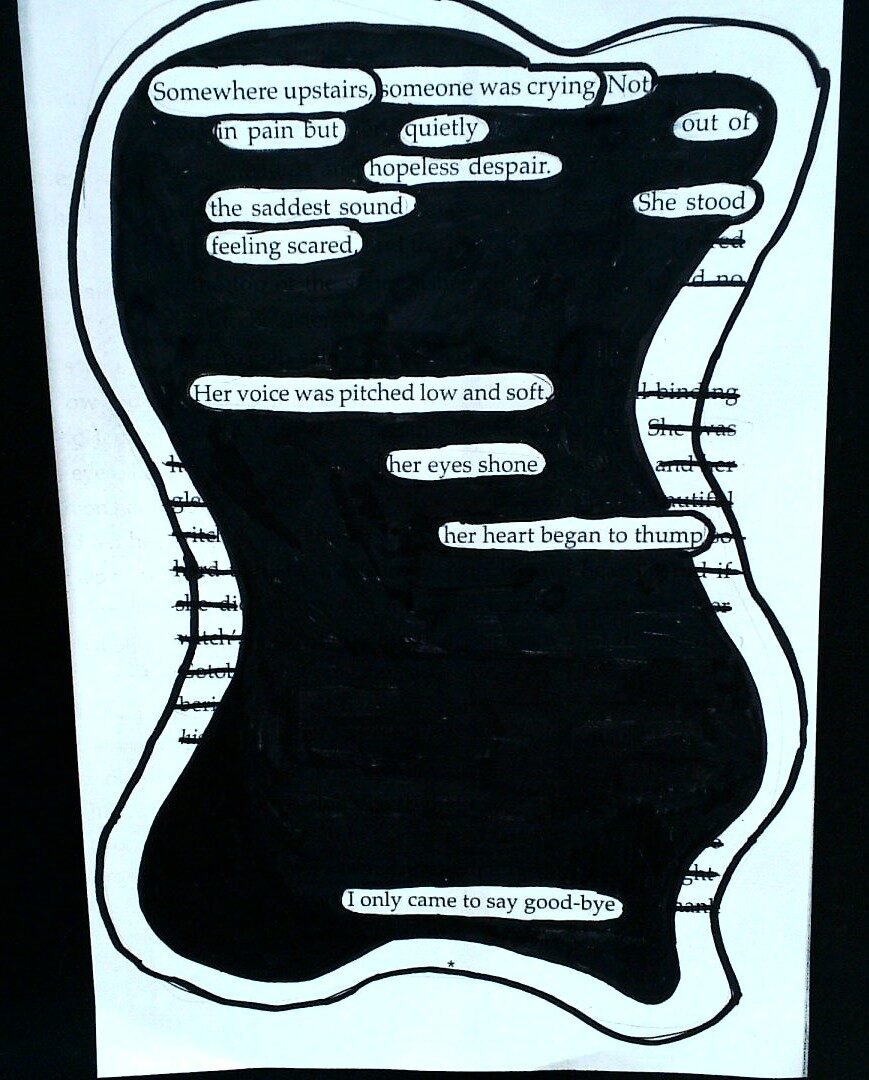 Somewhere upstairs, someone was crying Not
in pain but quietly out of
hopeless despair.
the saddest sound She stood
feeling scared,
d no
Her voice was pitched low and soft. l binding
She was
her eyes shone and her
her heart began to thump
d if
she di
witch'
I only came to say good-bye
*